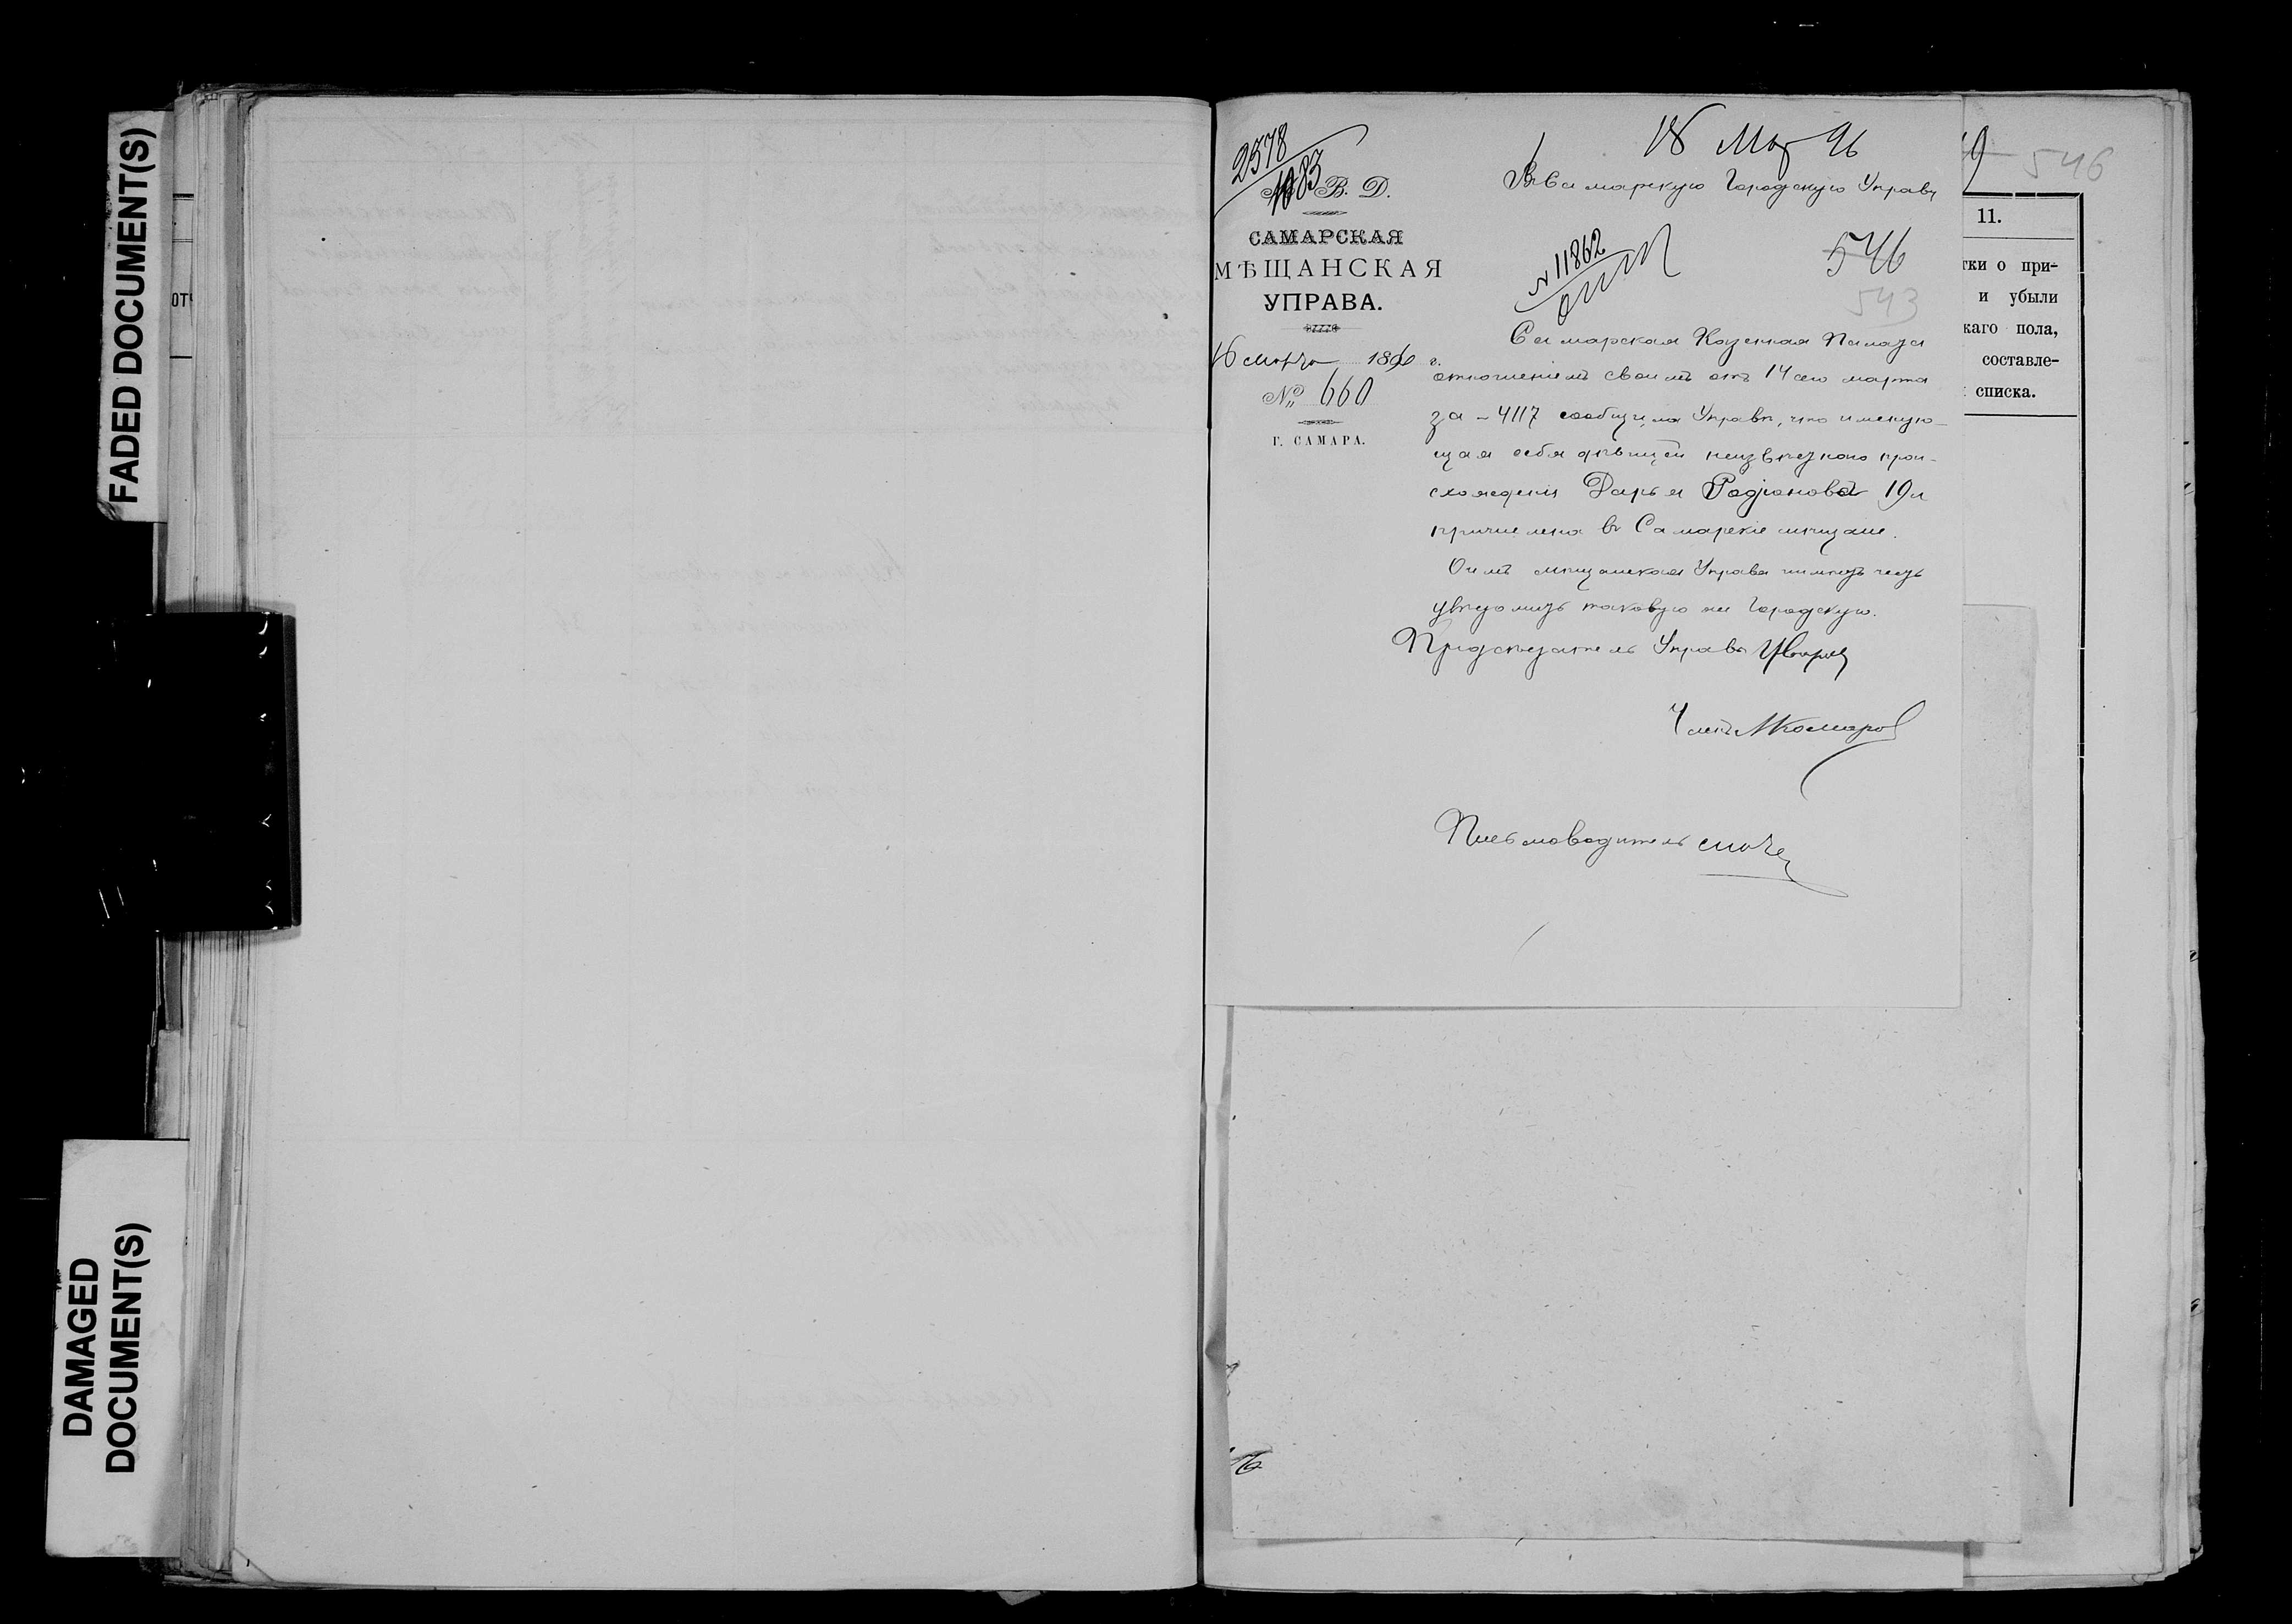 FADED DOCUMENT(S)
DAMAGED
DOCUMENT(S)
ОТ
2578
1083
В. Д.
САМАРСКАЯ
МѢЩАНСКАЯ
УПРАВА.
16 Марта 1896 г.
№ 660
Г. САМАРА.
18 Мар 96
Въ Самарскую Городскую Управу
№ 11862
546
543
Самарская Казенная Палата
отношеніемъ своимъ отъ 14 сего марта
за № 4117 сообщила Управѣ, что именую-
щая себя дѣвицей неизвѣстнаго прои-
схожденія Дарья Родіонова 19 л
причислена въ Самарскіе мѣщане.
О чемъ мѣщанская Управа имѣетъ честь
увѣдомить таковую же Городскую.
Предсѣдатель Управы
Членъ М Комаровъ
Письмоводитель
9
546
11.
тки о при-
и убыли
каго пола,
составле-
списка.